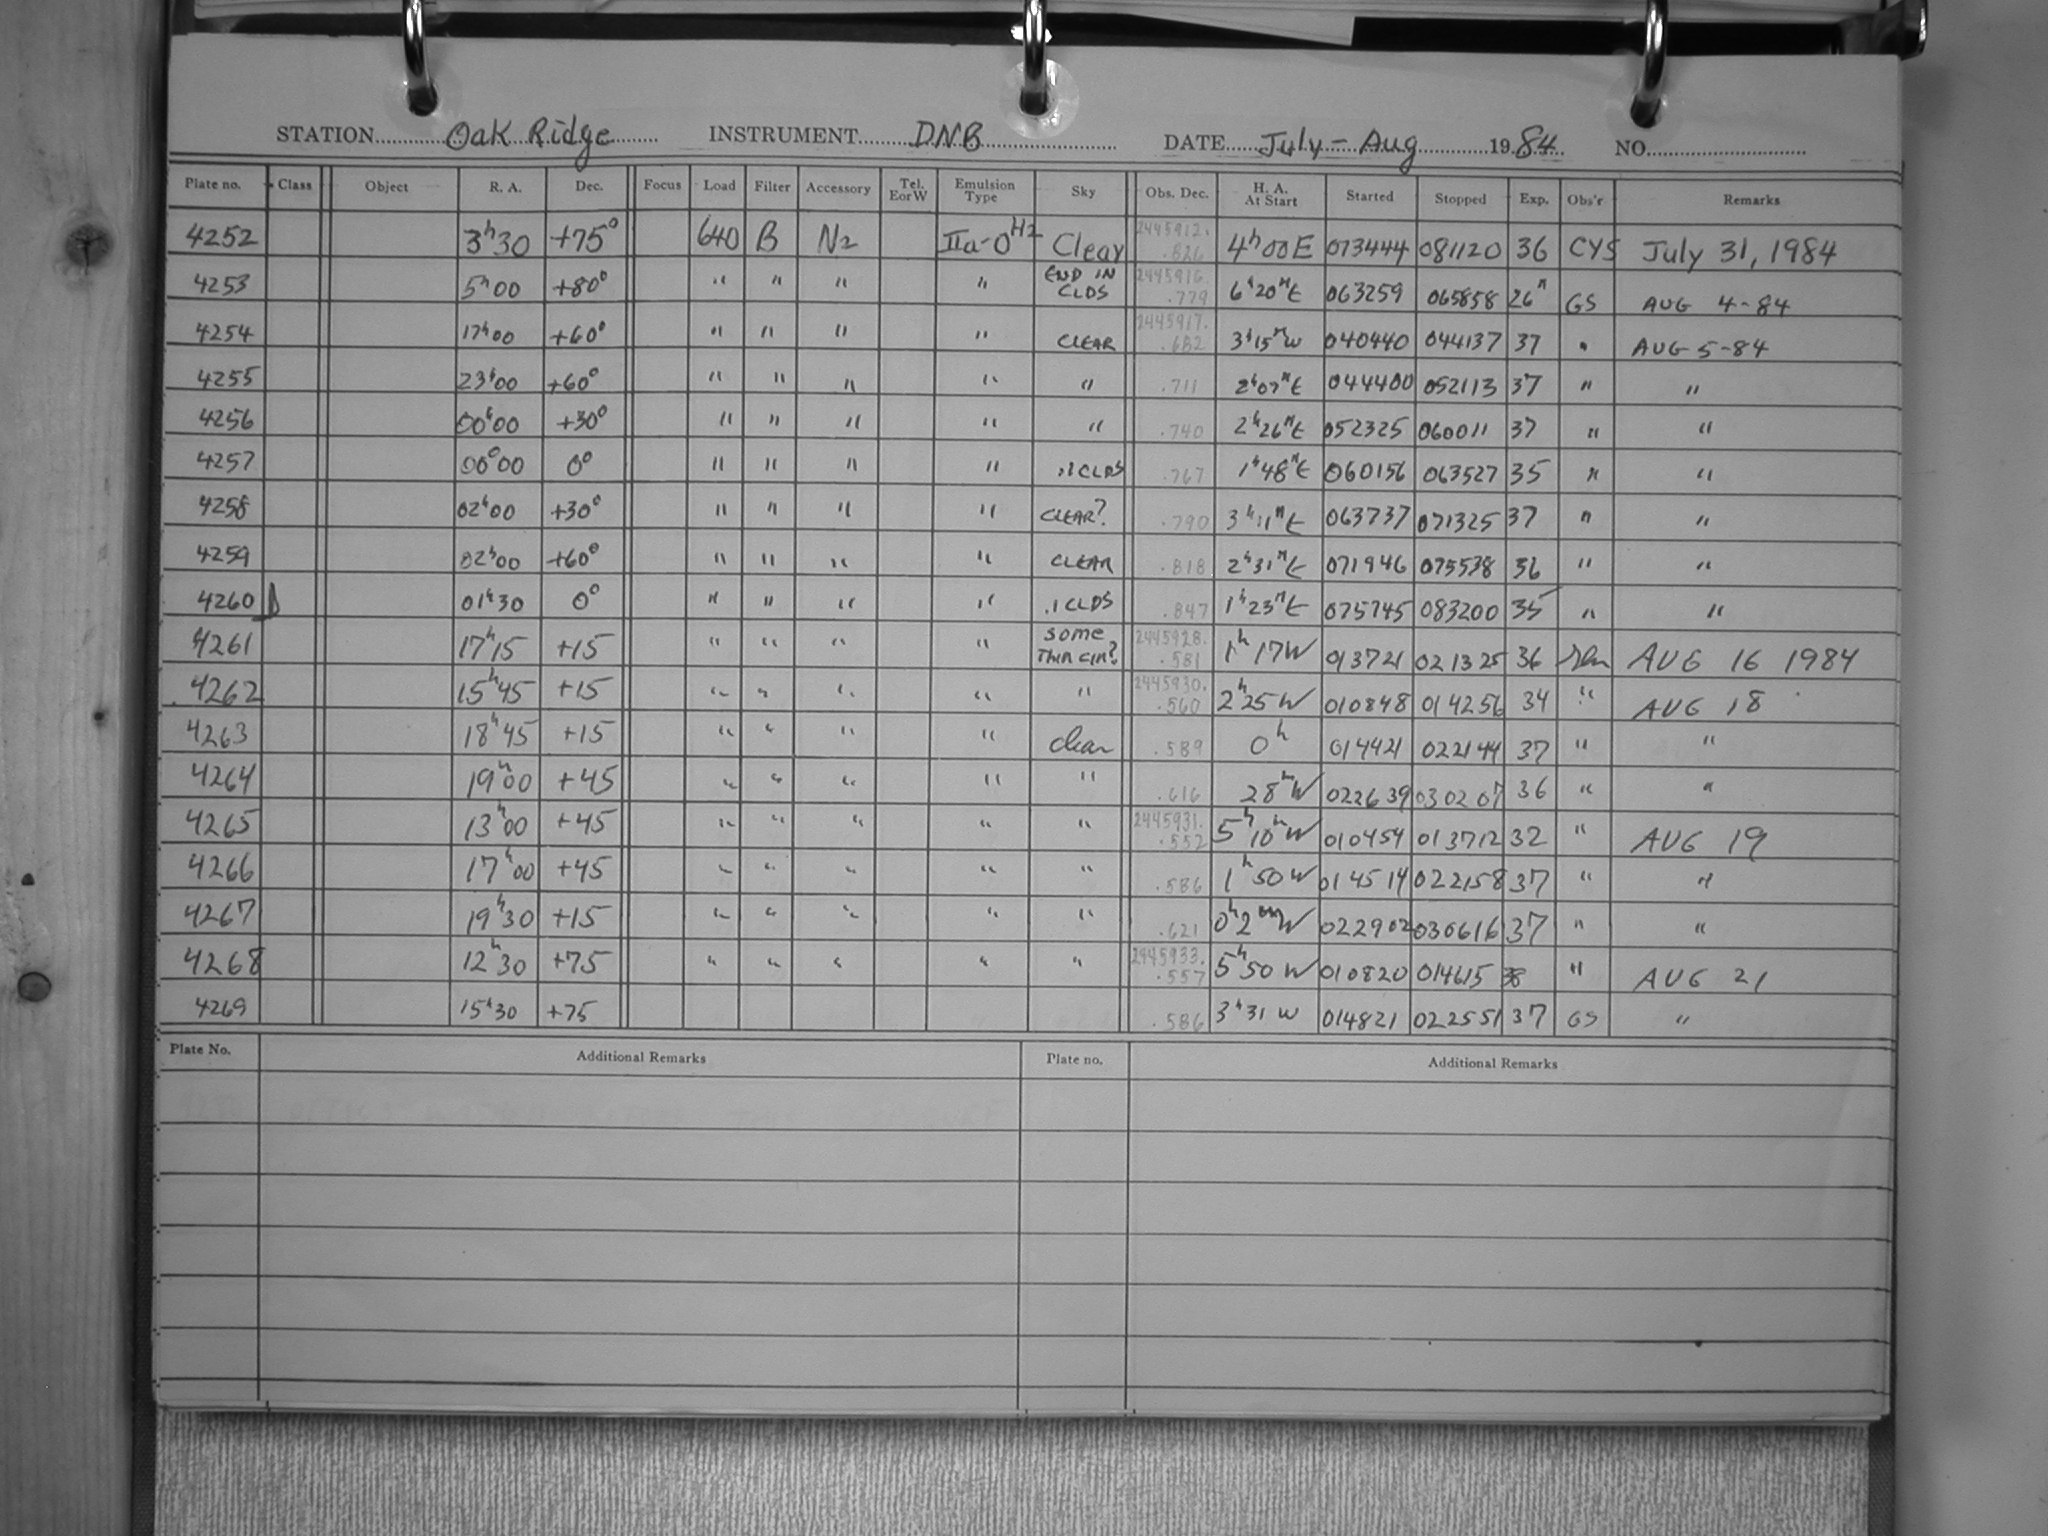 STATION Oak Ridge INSTRUMENT DNB DATE July - Aug 1984 NO.
Plate no. Class Object R. A. Dec. Focus Load Filter Accessory Tel. E or W Emulsion Type Sky Obs. Dec. H. A. At Start Started Stopped Exp. Obs'r Remarks
4252 3h30 +75° 640 B N2 IIa-O H2 Clear 2445912. .826 4h00E 073444 081120 36 CYS July 31, 1984
4253 5h00 +80° " " " " END IN CLDS 2445916. .779 6h20mE 063259 065858 26m GS AUG 4-84
4254 17h00 +60° " " " " CLEAR 2445917. .682 3h15mW 040440 044137 37 " AUG 5-84
4255 23h00 +60° " " " " " .711 2h07mE 044400 052113 37 " "
4256 00h00 +30° " " " " " .740 2h26mE 052325 060011 37 " "
4257 00°00 0° " " " " .1 CLDS .767 1h48mE 060156 063527 35 " "
4258 02h00 +30° " " " " CLEAR? .790 3h11mE 063737 071325 37 " "
4259 02h00 +60° " " " " CLEAR .818 2h31mE 071946 075538 36 " "
4260 01h30 0° " " " " .1 CLDS .847 1h23mE 075745 083200 35 " "
4261 17h15 +15 " " " " some THIN CIR? 2445928. .581 1h17W 013721 021325 36 AUG 16 1984
4262 15h45 +15 " " " " " 2445930. .560 2h25W 010848 014256 34 " AUG 18
4263 18h45 +15 " " " " clear .589 0h 014421 022144 37 " "
4264 19h00 +45 " " " " " .616 28mW 022639 030207 36 " "
4265 13h00 +45 " " " " " 2445931. .552 5h10mW 010454 013712 32 " AUG 19
4266 17h00 +45 " " " " " .586 1h50W 014514 022158 37 " "
4267 19h30 +15 " " " " " .621 0h2mW 022902 030616 37 " "
4268 12h30 +75 " " " " " 2445933. .557 5h50W 010820 014615 38 " AUG 21
4269 15h30 +75 .586 3h31W 014821 022551 37 GS "
Plate No. Additional Remarks Plate no. Additional Remarks